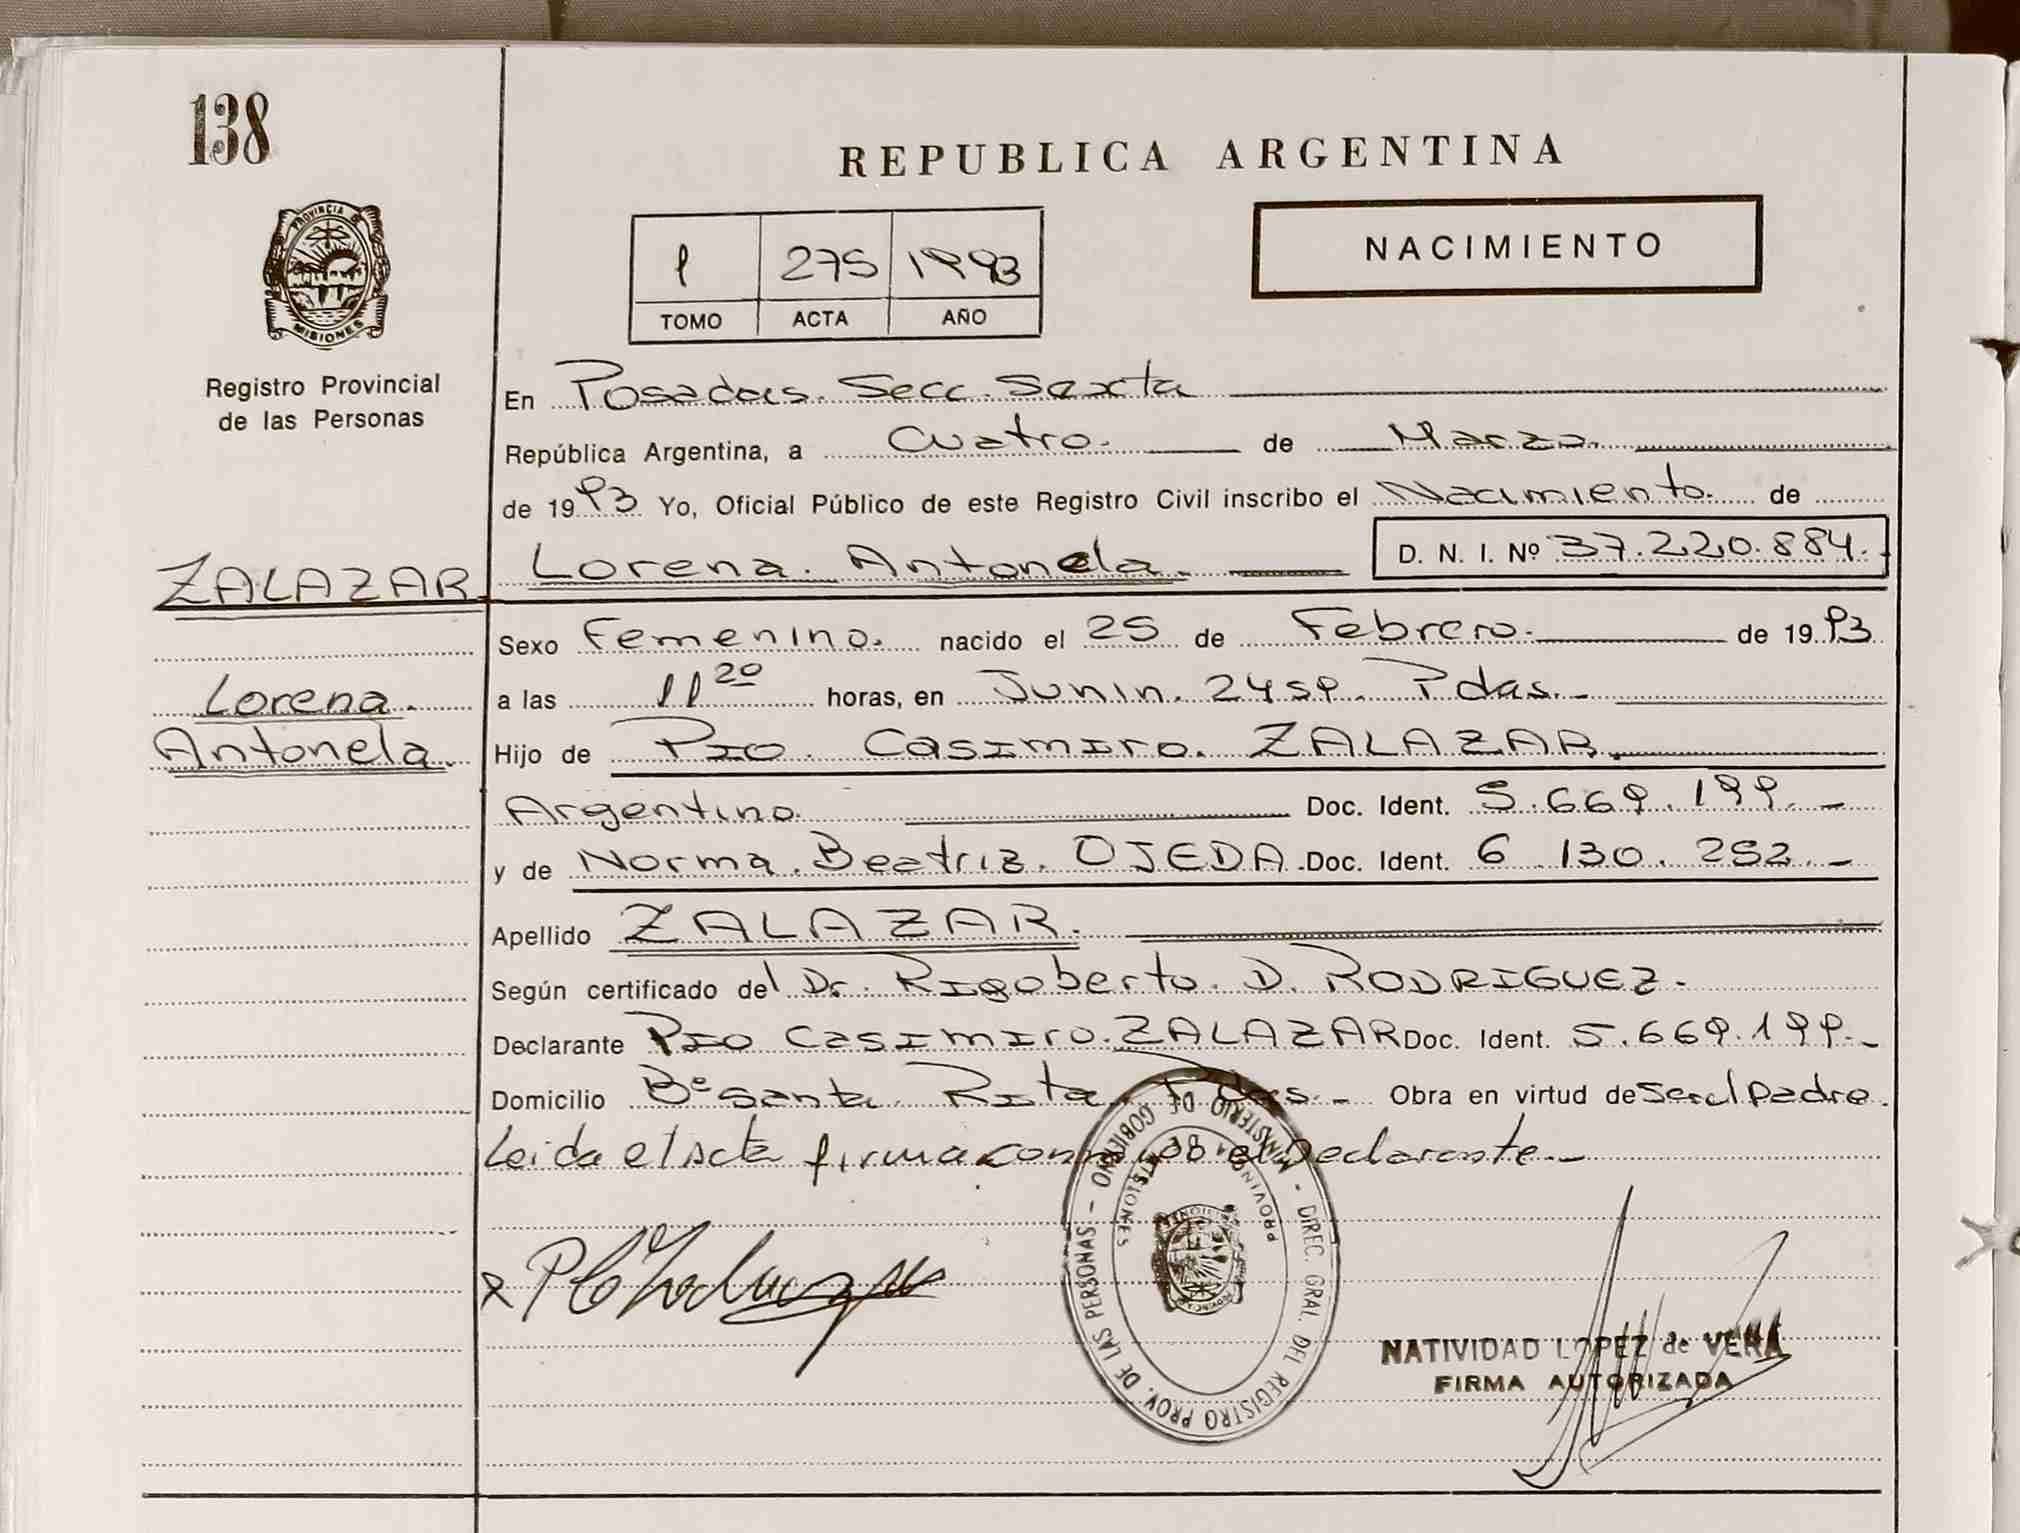 138
REPUBLICA ARGENTINA
PROVINCIA DE
MISIONES
1 275 1993
TOMO ACTA AÑO
NACIMIENTO
Registro Provincial
de las Personas
En Posadas. Secc. Sexta
República Argentina, a Cuatro. de Marzo.
de 1993 Yo, Oficial Público de este Registro Civil inscribo el Nacimiento. de
ZALAZAR Lorena. Antonela. D. N. I. Nº 37.220.884.
Sexo Femenino. nacido el 25 de Febrero. de 1993
Lorena. a las 11 20 horas, en Junin. 2459. Pdas.
Antonela. Hijo de PIO. Casimiro. ZALAZAR.
Argentino. Doc. Ident. 5.669.199.
y de Norma. Beatriz. OJEDA. Doc. Ident. 6.130.252.
Apellido ZALAZAR.
Según certificado del Dr. Rigoberto. D. RODRIGUEZ.
Declarante PIO Casimiro. ZALAZAR Doc. Ident. 5.669.199.
Domicilio Bº Santa Rita. Pdas. Obra en virtud de ser el padre.
Leida el acta firma conmigo el Declarante.
MINISTERIO DE GOBIERNO - DIREC. GRAL. DEL REGISTRO PROV. DE LAS PERSONAS -
PROVINCIA DE MISIONES
NATIVIDAD LOPEZ de VERA
FIRMA AUTORIZADA